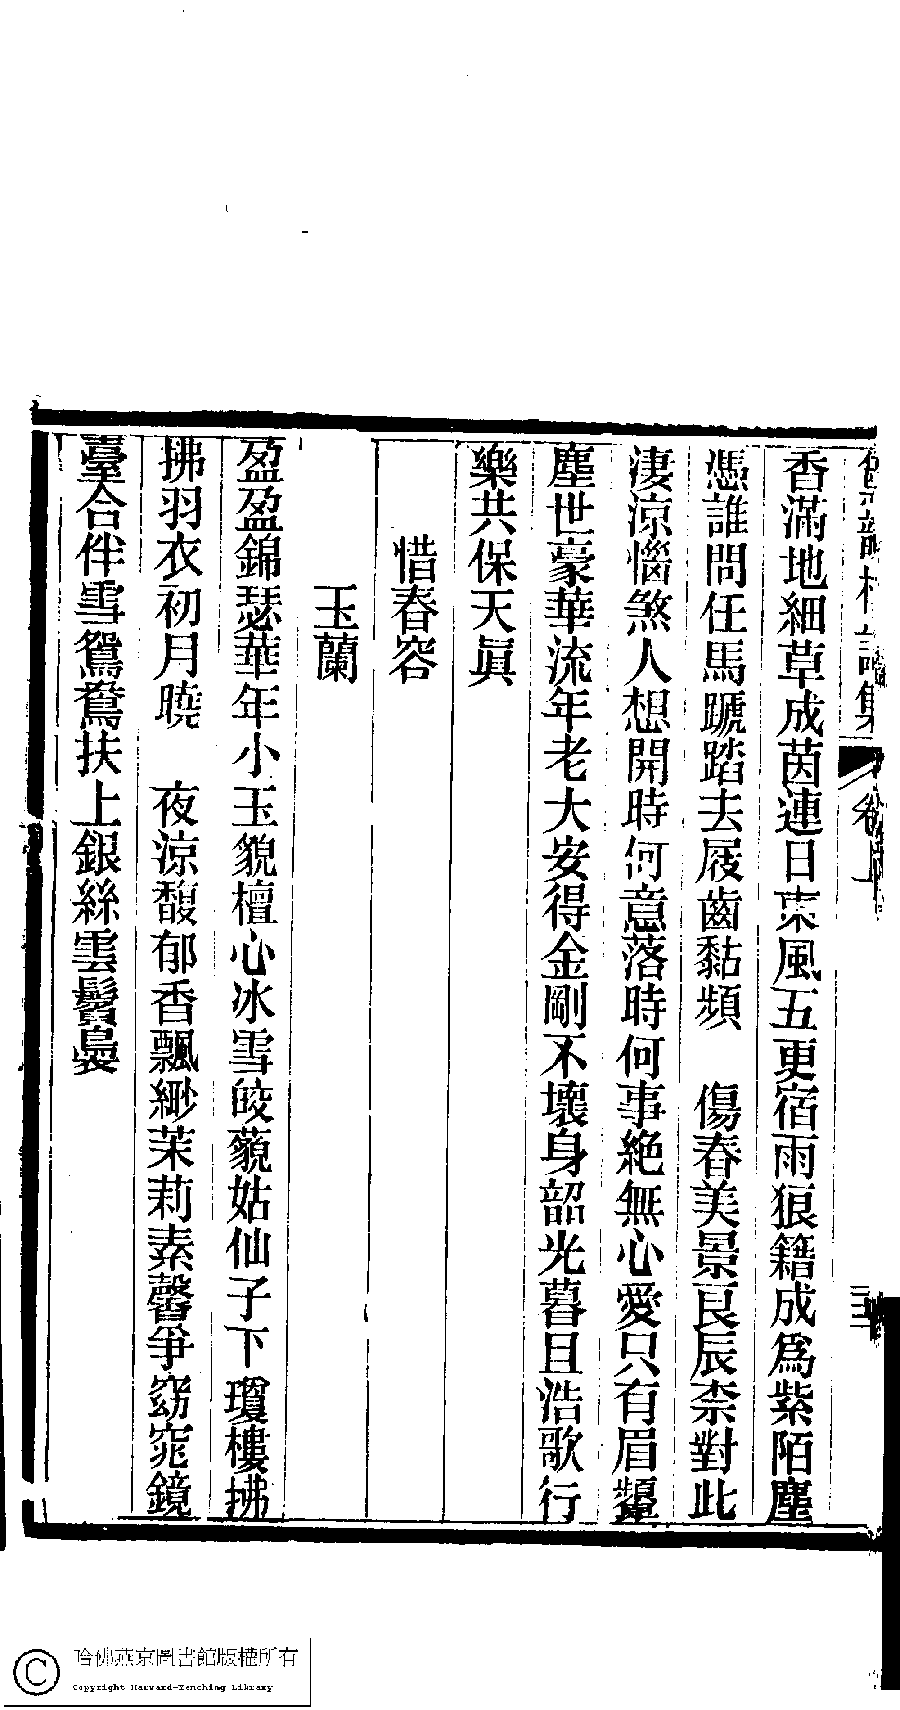 香滿地細草成茵連日東風五更宿雨狼籍成爲紫陌塵
憑誰問任馬蹏踏去屐齒黏頻　傷春美景良辰柰對此
淒涼惱煞人想開時何意落時何事絶無心愛只有眉顰
塵世豪華流年老大安得金剛不壞身韶光暮且浩歌行
樂共保天眞
惜春容
玉蘭
盈盈錦瑟華年小玉貌檀心冰雪皎藐姑仙子下瓊樓拂
拂羽衣初月曉　夜涼馥郁香飄緲茉莉素馨爭窈窕鏡
臺合伴雪鴛鴦扶上銀絲雲鬢裊
卷上
三
哈佛燕京圖書館版權所有
Copyright Harvard-Yenching Library